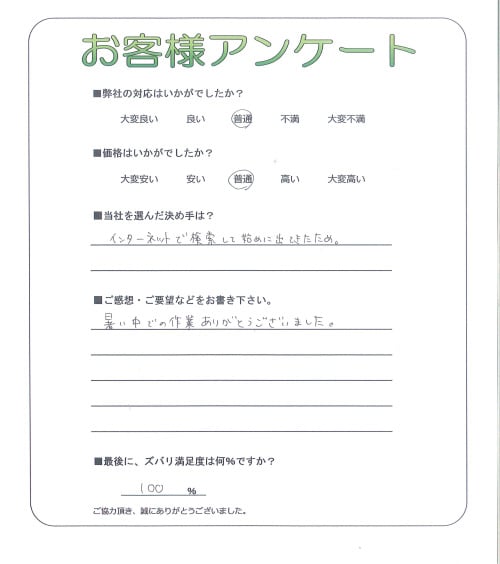 お客様アンケート
■弊社の対応はいかがでしたか？
大変良い 良い 普通 不満 大変不満
■価格はいかがでしたか？
大変安い 安い 普通 高い 大変高い
■当社を選んだ決め手は？
インターネットで検索して始めに出てきたため。
■ご感想・ご要望などをお書き下さい。
暑い中での作業ありがとうございました。
■最後に、ズバリ満足度は何%ですか？
100 %
ご協力頂き、誠にありがとうございました。